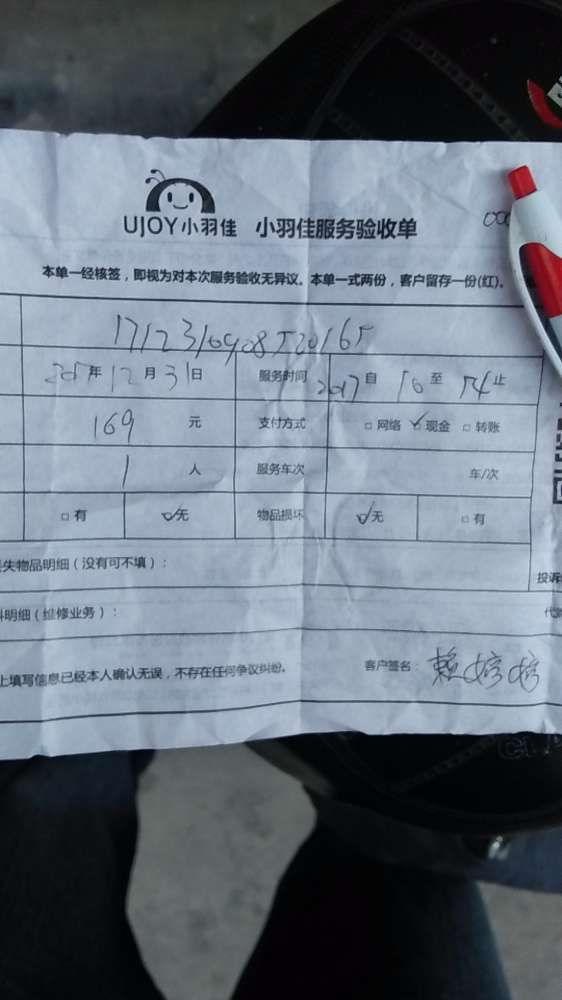 UJOY小羽佳 小羽佳服务验收单
本单一经核签，即视为对本次服务验收无异议。本单一式两份，客户留存一份(红)。
年12月31日 服务时间 2017自 10至 14止
169 元 支付方式 □网络 ☑现金 □转账
1 人 服务车次 车/次
□有 ☑无 物品损坏 ☑无 □有
失物品明细（没有可不填）：
投诉
明细（维修业务）：
上填写信息已经本人确认无误，不存在任何争议纠纷。 客户签名：赖婷婷